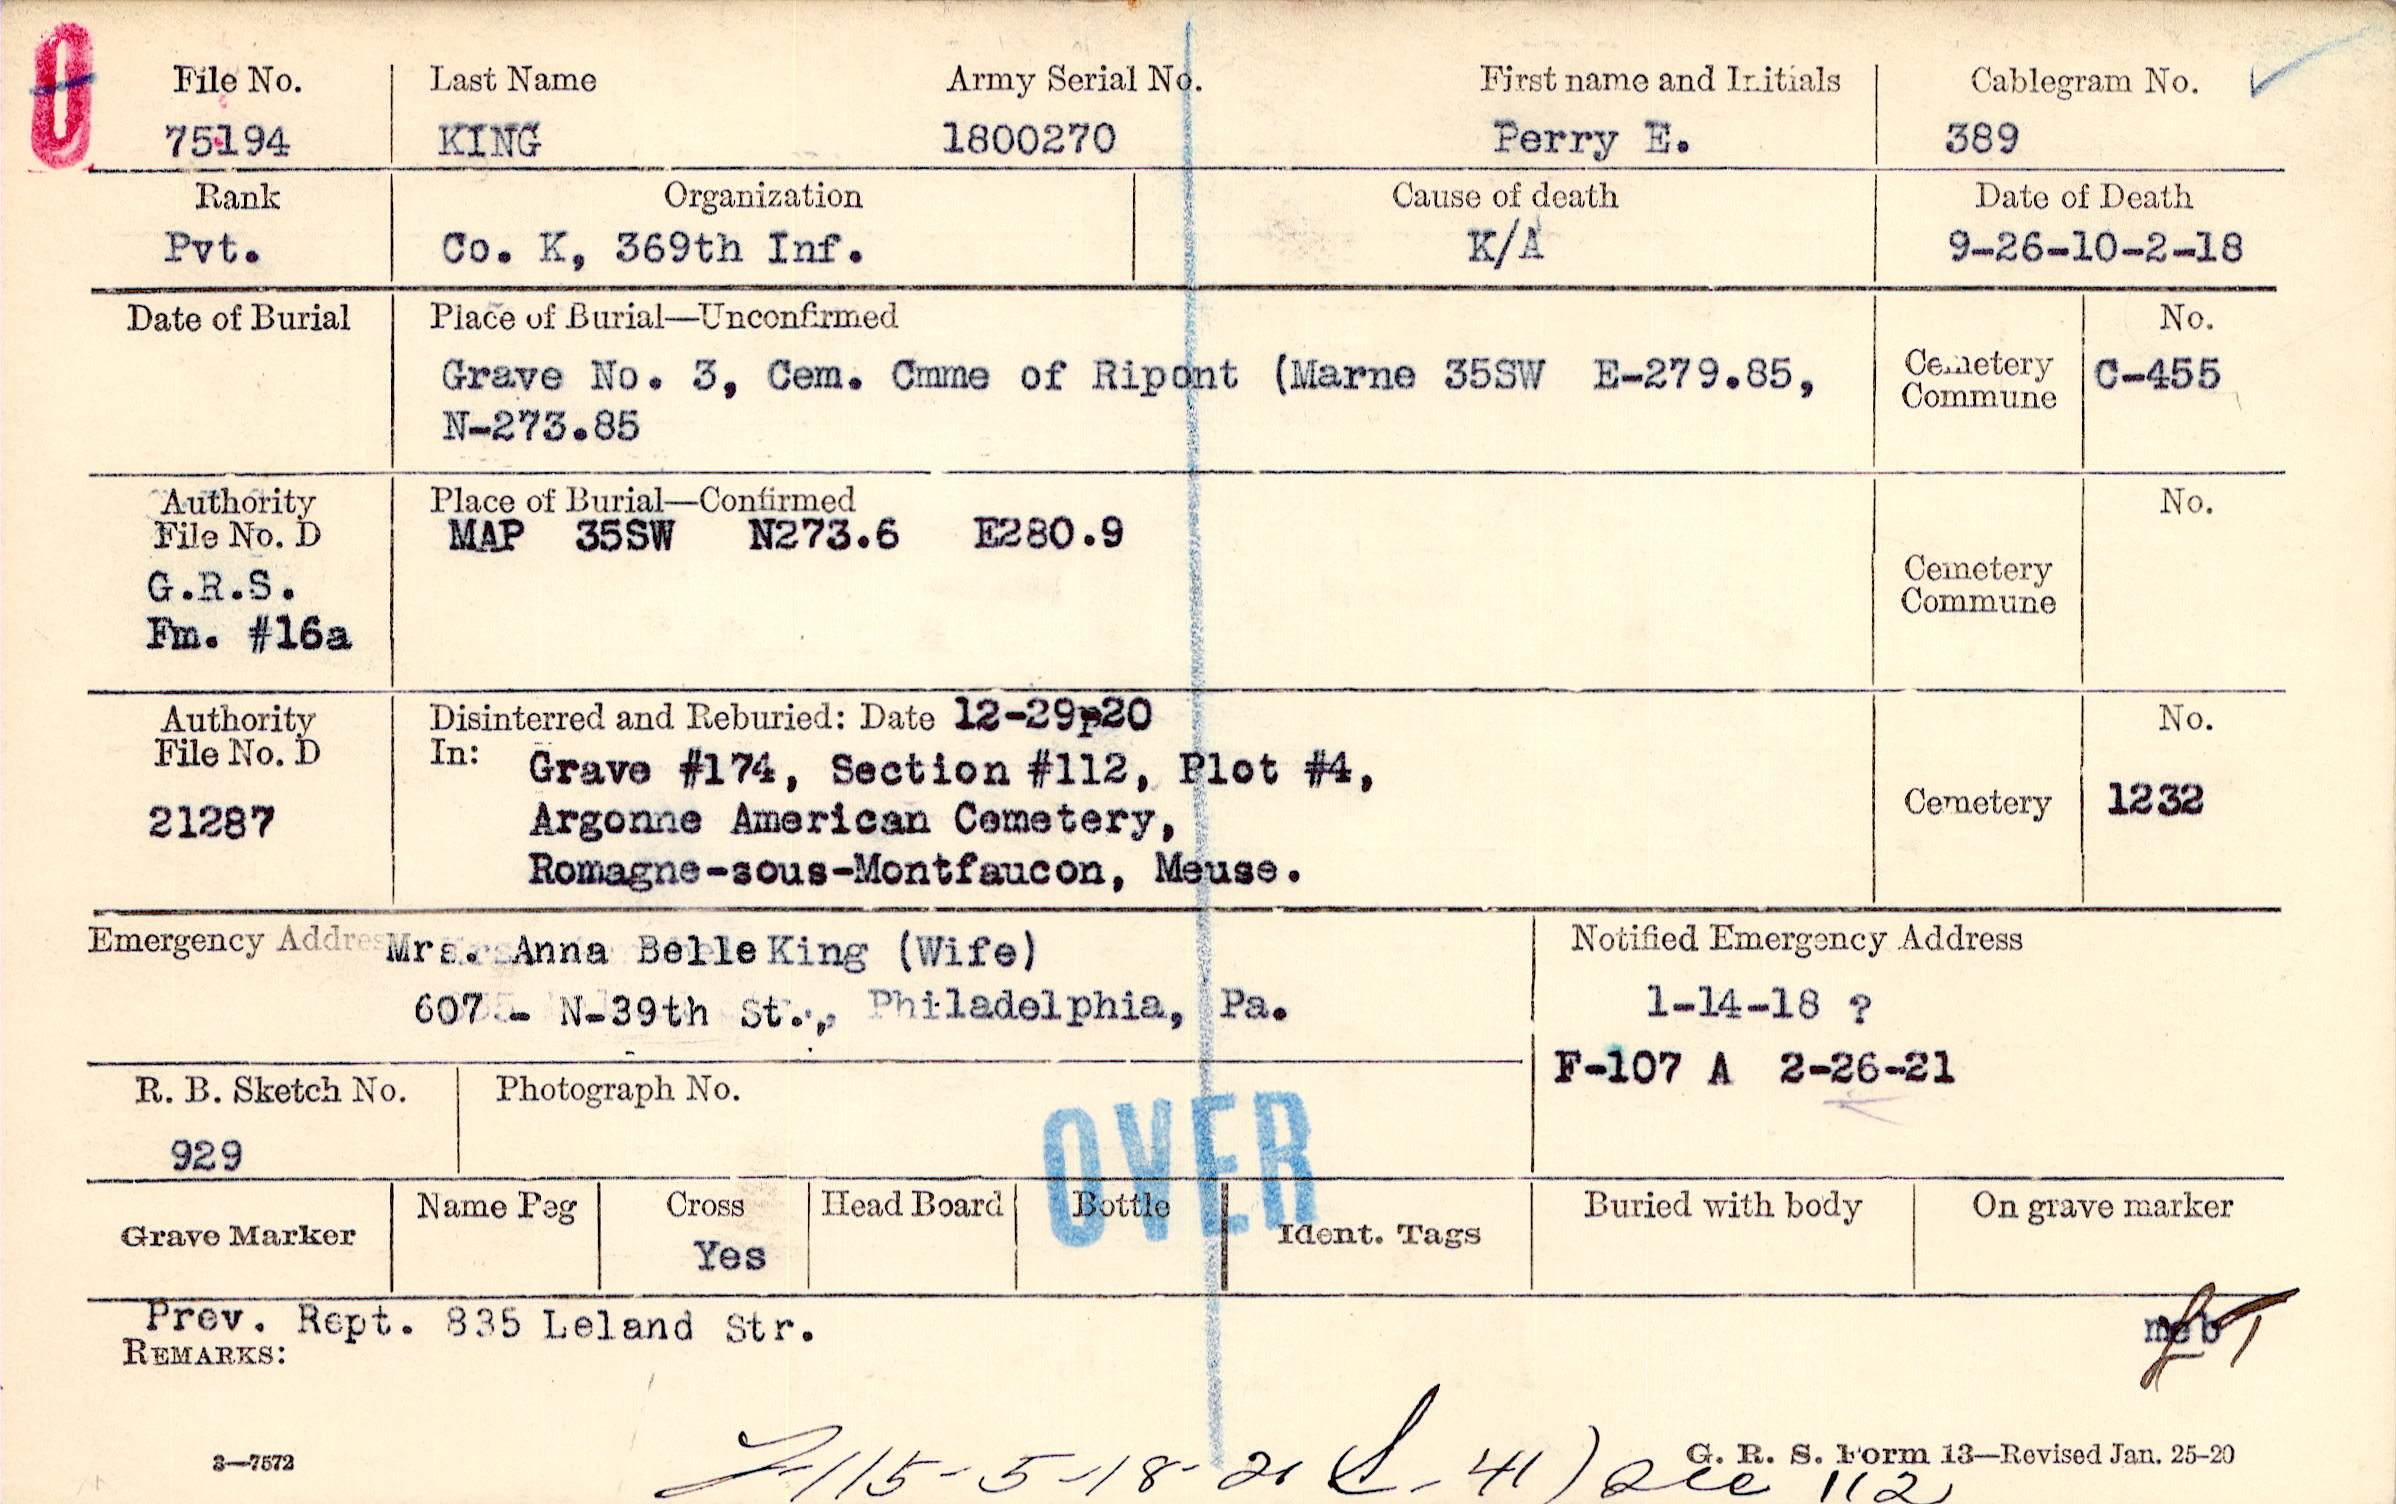 File No. Last Name Army Serial No. First name and Initials Cablegram No.
75194 KING 1800270 Perry E. 389
Rank Organization Cause of death Date of Death
Pvt. Co. K, 369th Inf. K/A 9-26-10-2-18
Date of Burial Place of Burial—Unconfirmed No.
Grave No. 3, Cem. Cmme of Ripont (Marne 35SW E-279.85, Cemetery Commune C-455
N-273.85
Authority Place of Burial—Confirmed No.
File No. D MAP 35SW N273.6 E280.9
G.R.S. Cemetery
Fm. #16a Commune
Authority Disinterred and Reburied: Date 12-29-20 No.
File No. D In: Grave #174, Section #112, Plot #4,
21287 Argonne American Cemetery, Cemetery 1232
Romagne-sous-Montfaucon, Meuse.
Emergency Address Mrs. Anna Belle King (Wife) Notified Emergency Address
607 - N-39th St., Philadelphia, Pa. 1-14-18 ?
F-107 A 2-26-21
R. B. Sketch No. Photograph No.
929
OVER
Grave Marker Name Peg Cross Head Board Bottle Ident. Tags Buried with body On grave marker
Yes
Prev. Rept. 835 Leland Str. meb
REMARKS:
3—7572 G. R. S. Form 13—Revised Jan. 25-20
115-5-18-21 41) 112